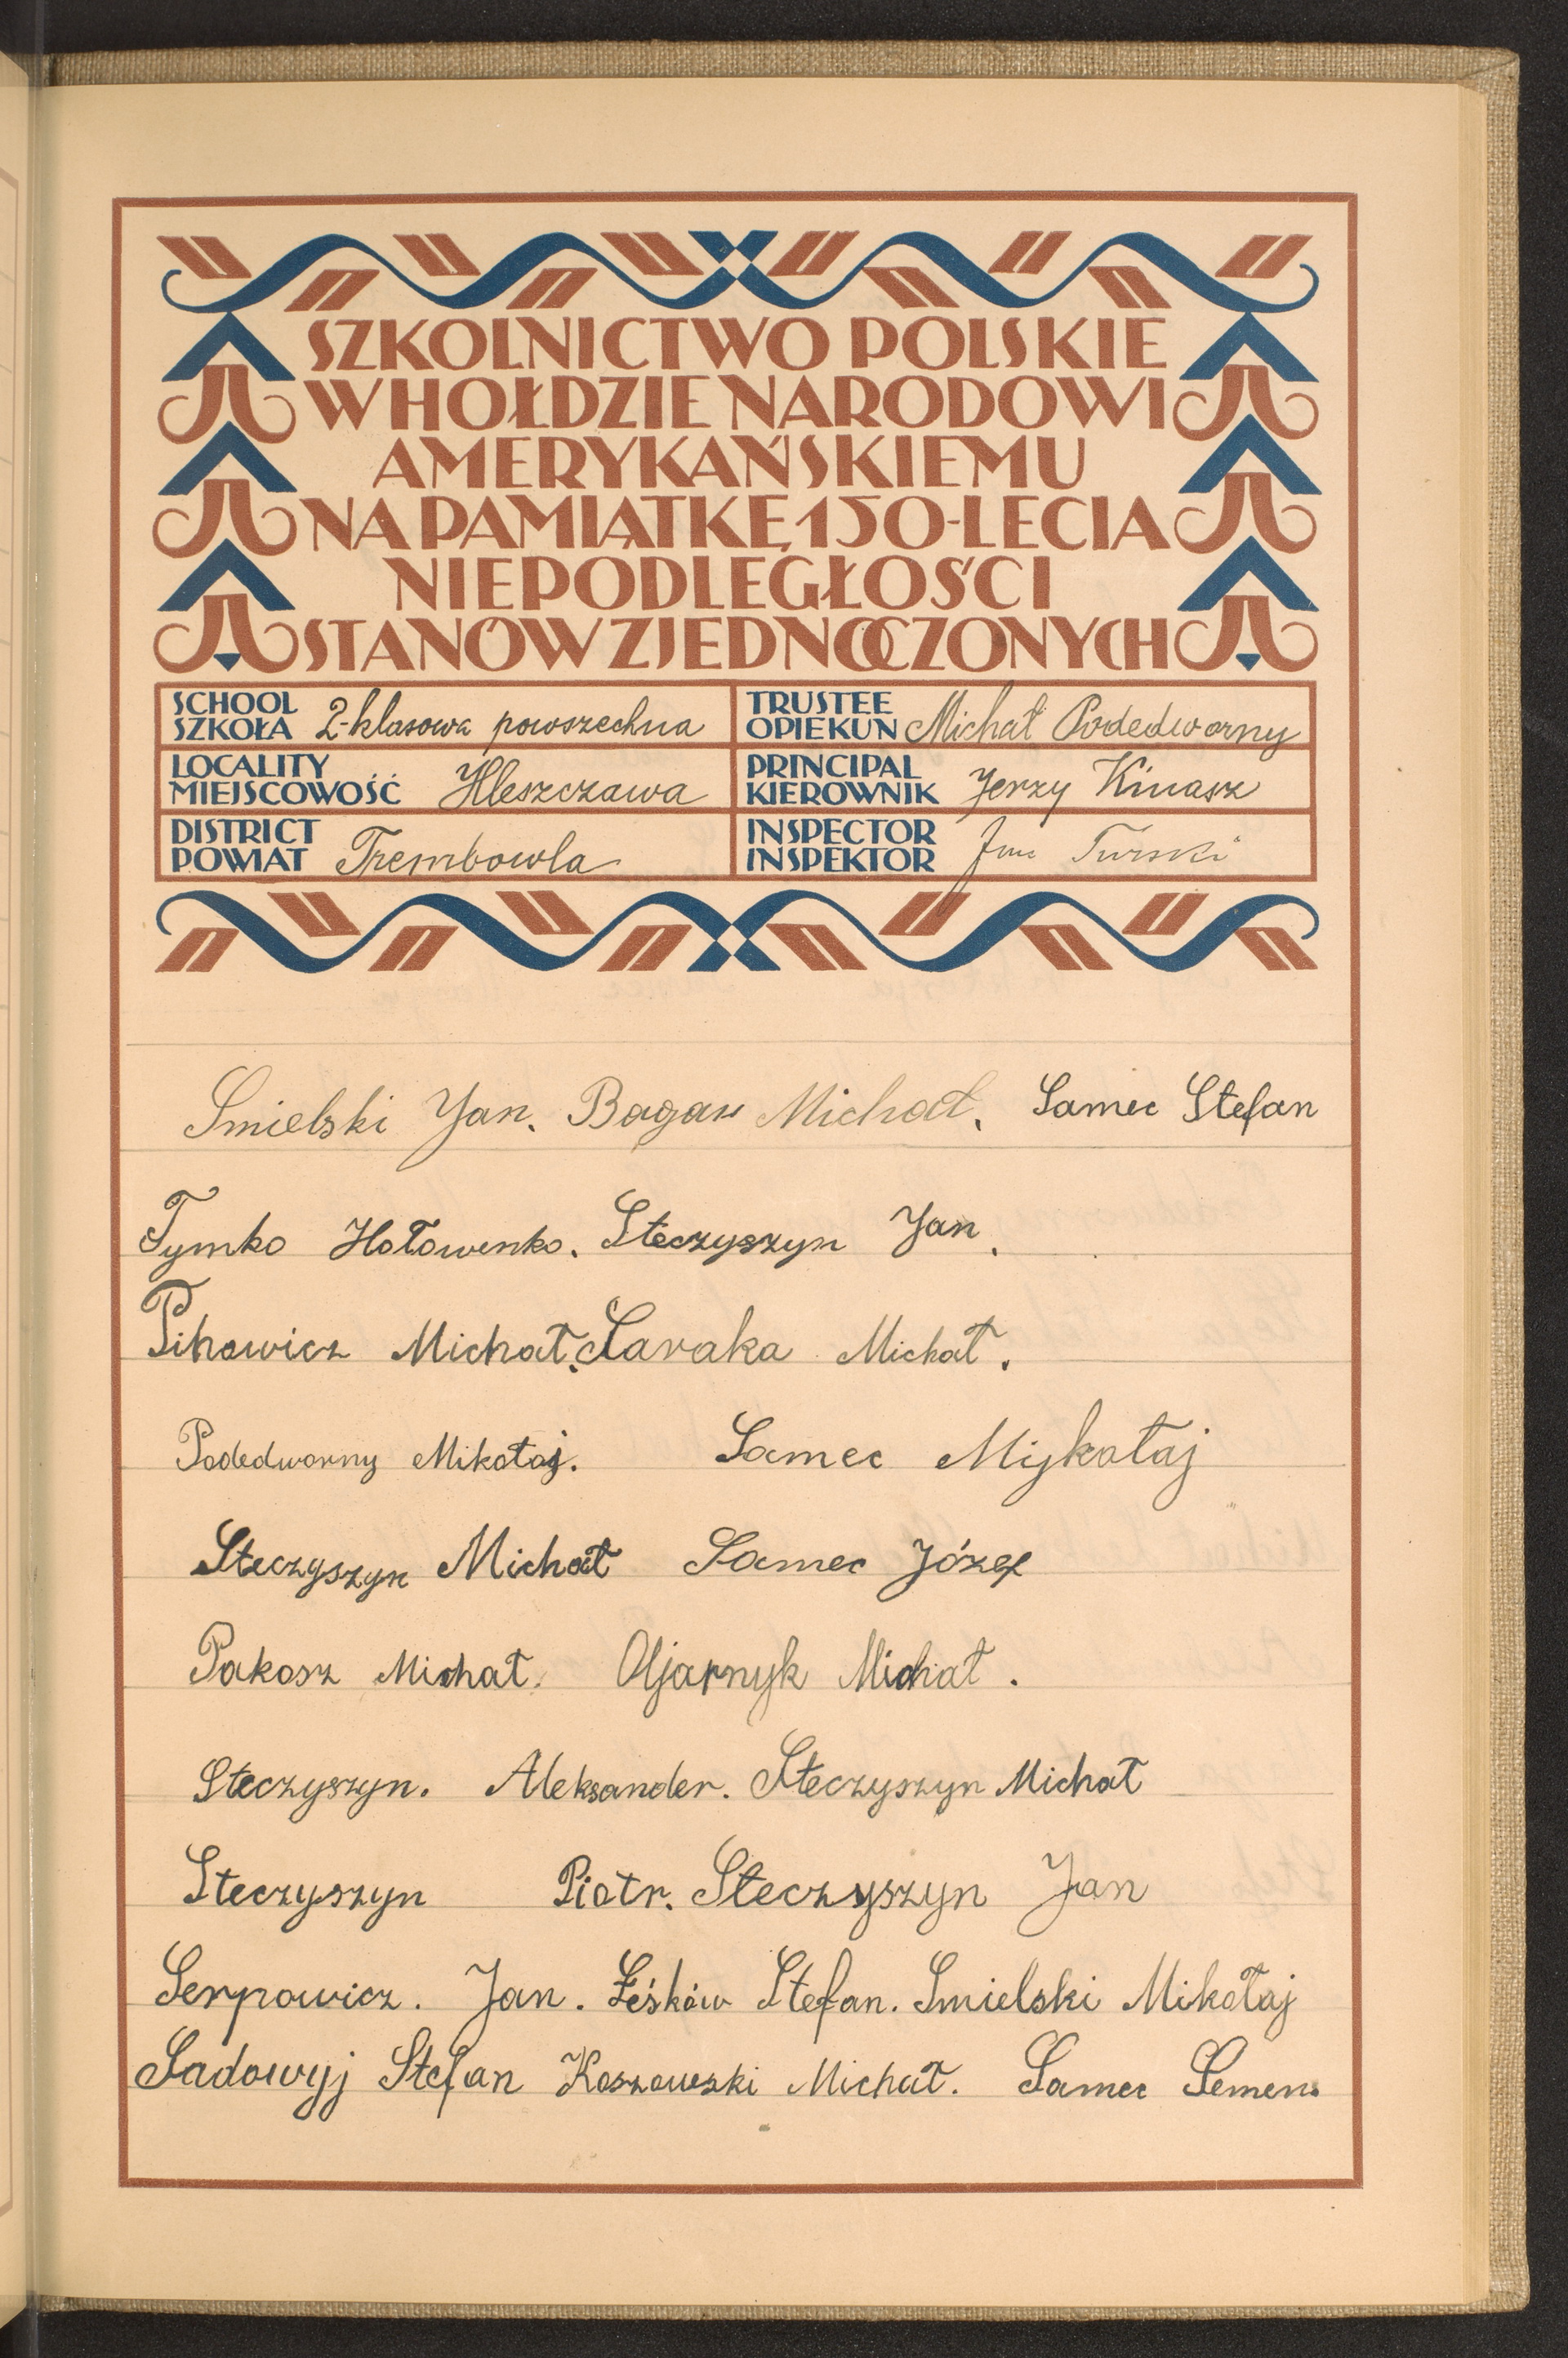 SZKOLNICTWO POLSKIE
W HOŁDZIE NARODOWI
AMERYKAŃSKIEMU
NA PAMIĄTKĘ 150-LECIA
NIEPODLEGŁOŚCI
STANÓW ZJEDNOCZONYCH
SCHOOL SZKOŁA 2-klasowa powszechna
TRUSTEE OPIEKUN Michał Podedworny
LOCALITY MIEJSCOWOŚĆ Hleszczawa
PRINCIPAL KIEROWNIK Jerzy Kinasz
DISTRICT POWIAT Trembowla
INSPECTOR INSPEKTOR Jan Turski
Smielski Jan. Bagan Michał. Samec Stefan
Tymko Hołowenko. Steczyszyn Jan.
Pihowicz Michał. Saraka Michał.
Podedworny Mikołaj. Samec Mykołaj
Steczyszyn Michał Samec Józef
Pakosz Michał. Oljarnyk Michał.
Steczyszyn. Aleksander. Steczyszyn Michał
Steczyszyn Piotr. Steczyszyn Jan
Serpowicz. Jan. Łeśków Stefan. Smielski Mikołaj
Sadowyj Stefan Koszowski Michał. Samec Semen.